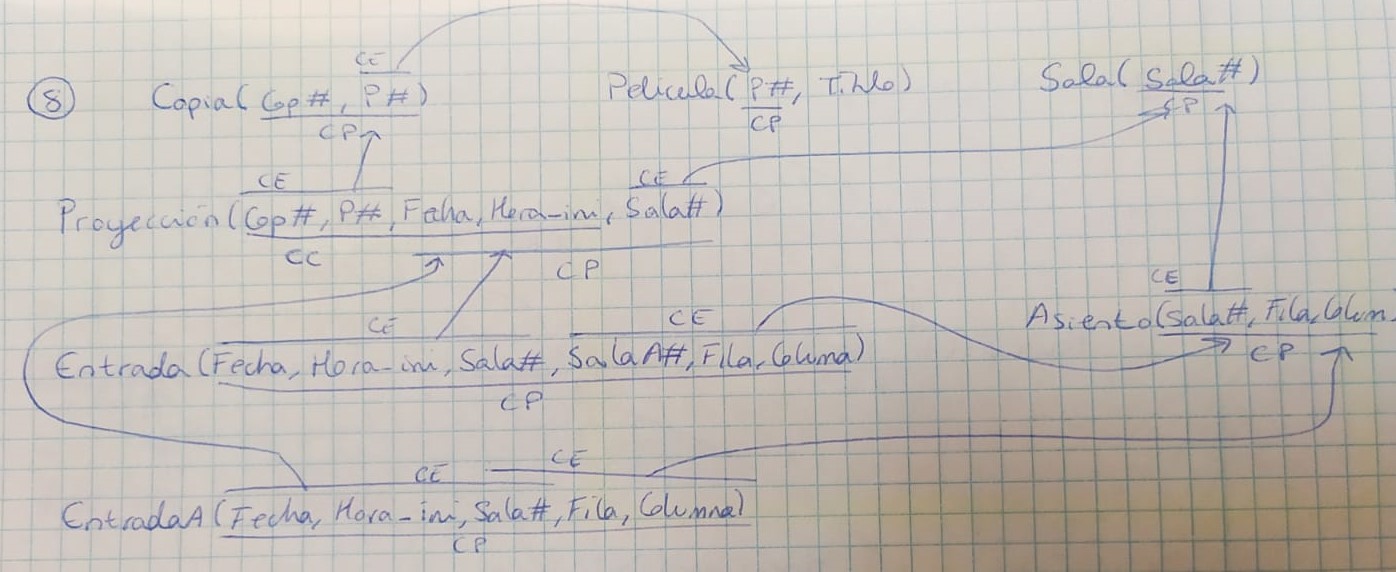 CE
⑧ Copia(Cop#, P#) Película(P#, Título) Sala(Sala#)
CP CP CP
CE CE
Proyección(Cop#, P#, Fecha, Hora-ini, Sala#)
CC CP
CE CE CE
Asiento(Sala#, Fila, Colum.
Entrada(Fecha, Hora-ini, Sala#, SalaA#, Fila, Columa)
CP CP
CE CE
EntradaA(Fecha, Hora-ini, Sala#, Fila, Columna)
CP